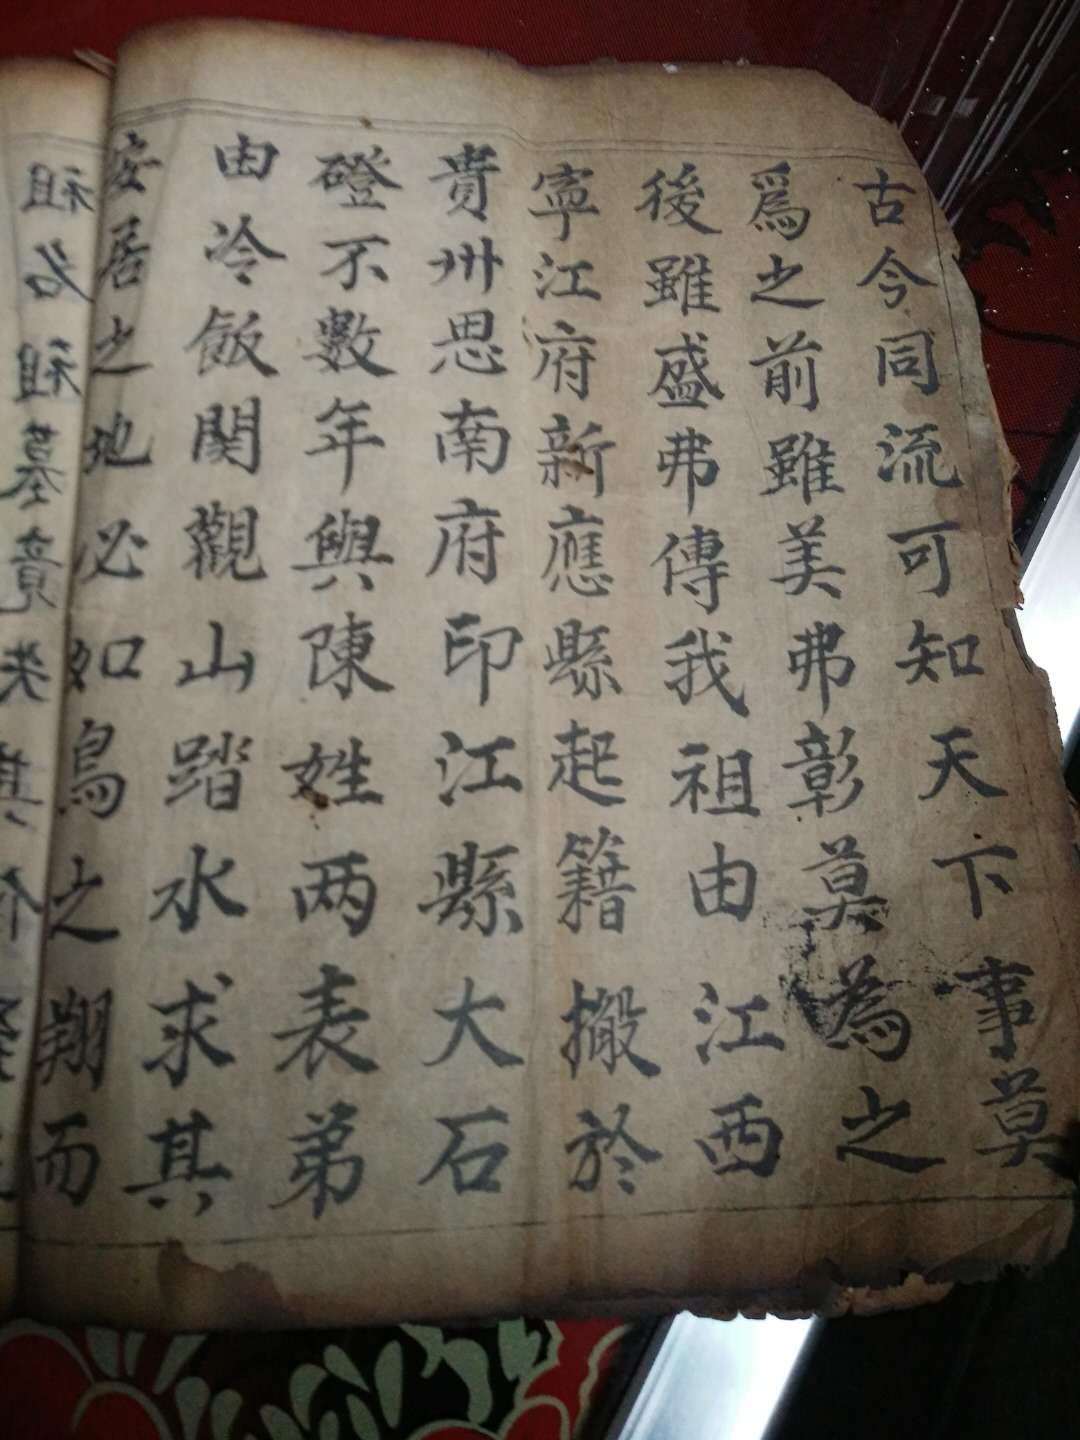 古今同流可知天下事莫
爲之前雖美弗彰莫為之
後雖盛弗傳我祖由江西
寧江府新應縣起籍搬於
貴州思南府印江縣大石
磴不數年與陳姓两表弟
由冷飯関觀山踏水求其
安居之地必如鳥之翔而
祖名祖墓竟失其